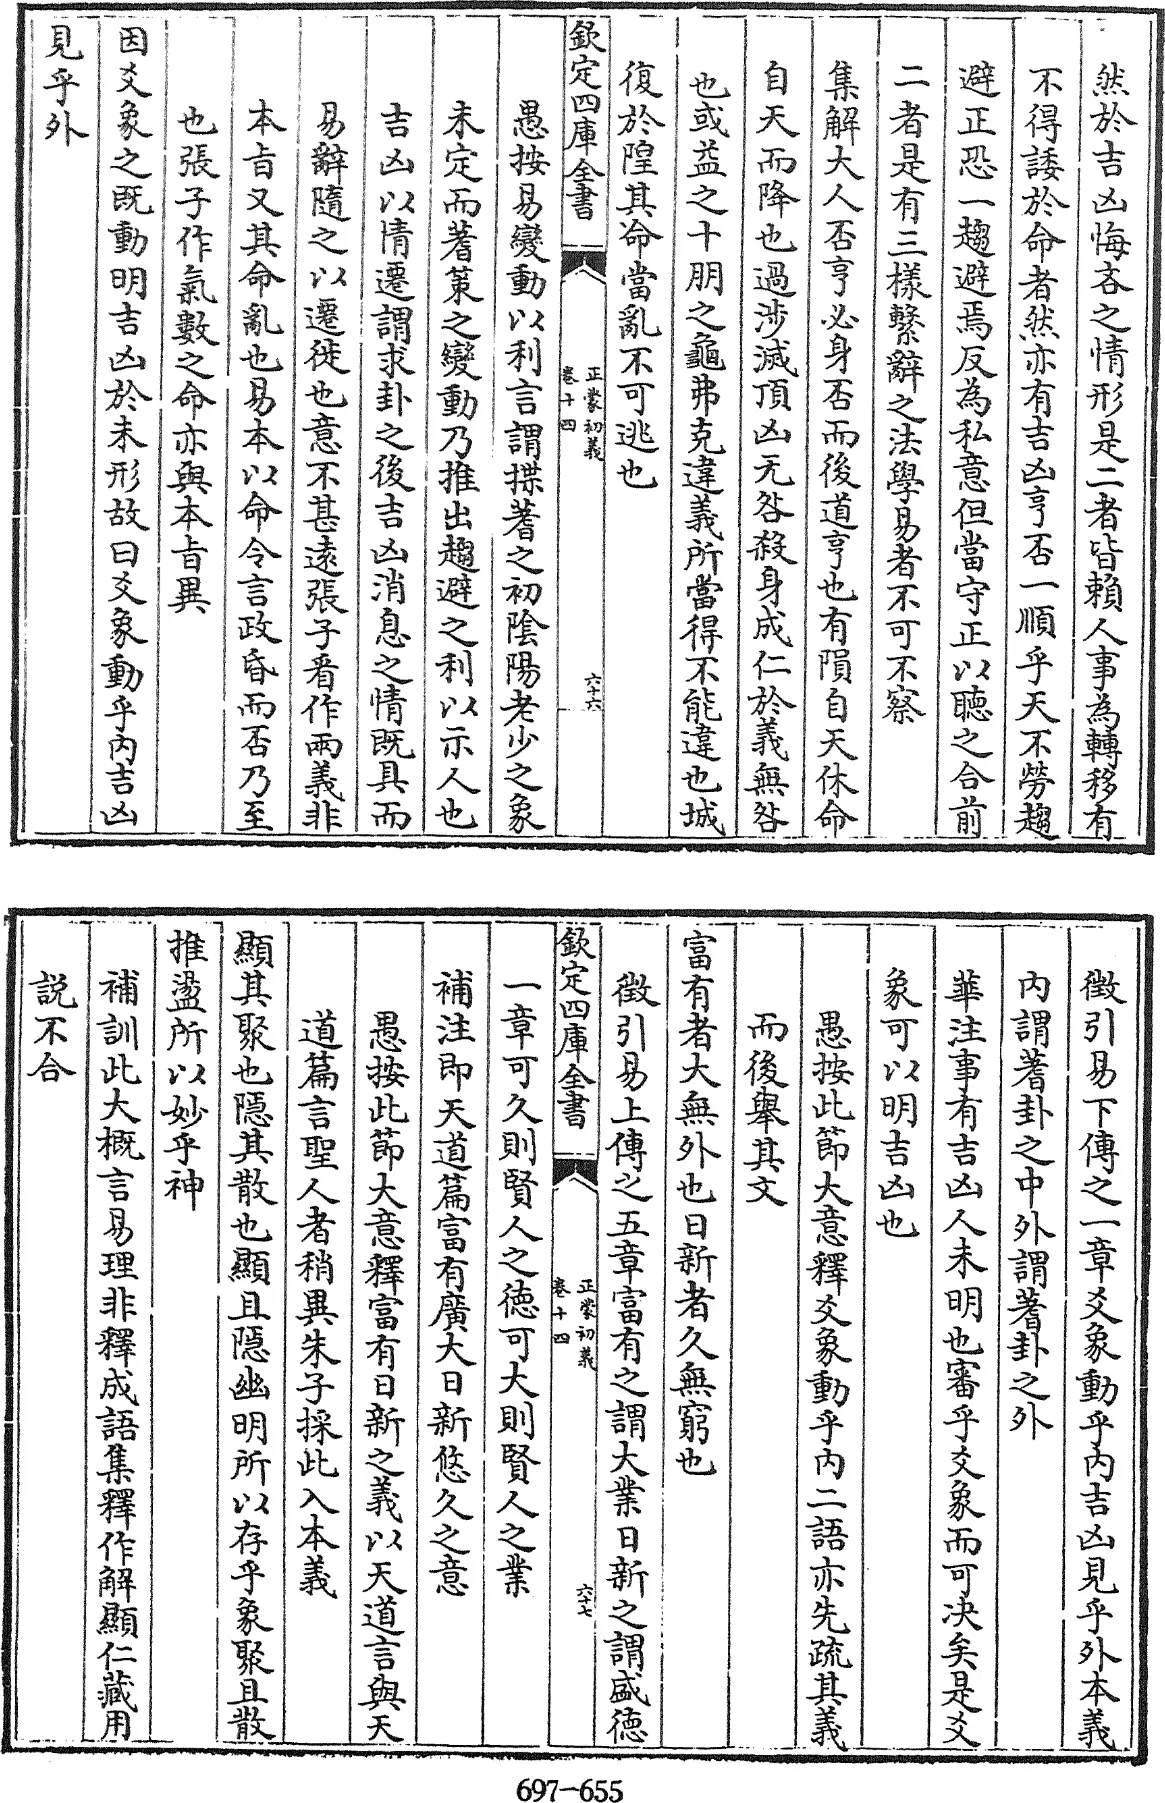 然於吉凶悔吝之情形是二者皆賴人事為轉移有
不得諉於命者然亦有吉凶亨否一順乎天不勞趨
避正恐一趨避焉反為私意但當守正以聽之合前
二者是有三樣繫辭之法學易者不可不察
集解大人否亨必身否而後道亨也有隕自天休命
自天而降也過涉滅頂凶无咎殺身成仁於義無咎
也或益之十朋之龜弗克違義所當得不能違也城
復於隍其命當亂不可逃也
欽定四庫全書
正蒙初義
卷十四
六十六
愚按易變動以利言謂揲蓍之初陰陽老少之象
未定而蓍策之變動乃推出趨避之利以示人也
吉凶以情遷謂求卦之後吉凶消息之情既具而
易辭隨之以遷徙也意不甚遠張子看作兩義非
本旨又其命亂也易本以命令言政昏而否乃至
也張子作氣數之命亦與本旨異
因爻象之既動明吉凶於未形故曰爻象動乎內吉凶
見乎外
徵引易下傳之一章爻象動乎內吉凶見乎外本義
內謂蓍卦之中外謂蓍卦之外
華注事有吉凶人未明也審乎爻象而可決矣是爻
象可以明吉凶也
愚按此節大意釋爻象動乎內二語亦先疏其義
而後舉其文
富有者大無外也日新者久無窮也
徵引易上傳之五章富有之謂大業日新之謂盛德
欽定四庫全書
正蒙初義
卷十四
六十七
一章可久則賢人之德可大則賢人之業
補注即天道篇富有廣大日新悠久之意
愚按此節大意釋富有日新之義以天道言與天
道篇言聖人者稍異朱子採此入本義
顯其聚也隱其散也顯且隱幽明所以存乎象聚且散
推盪所以妙乎神
補訓此大概言易理非釋成語集釋作解顯仁藏用
說不合
697-655